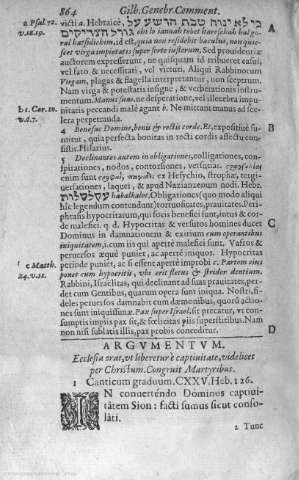 864 Gilb. Genebr. Comment.
a Psal. 72. v.18.19.
victi a. Hebraicè, כי לא ינוח שבט הרשע על
גורל הצדיקים chi lo ianuah scebet harescha hal go-
ral hatsadichim, id est, quia non residebit baculus, non quie-
scet virga impietatis super sorte iustorum. Sed prouidentiæ
auctorem expresserunt, ne quisquam id tribueret casui,
vel fato & necessitati, vel victuti. Aliqui Rabbinorum
Virgam, plagas & flagella interpretantur, non sceptrum.
Nam virga & potestatis insigne, & verberationis instru-
mentum. Manus suas, ne desperatione, vel illecebra impu-
b 1. Cor. 10. v.6.7.
nitatis peccandi malè agant b. Ne mittant manus ad sce-
lera perpetranda.
4 Benefac Domine, bonis & rectis corde. Et, expositiuè su-
mitur, quia perfecta bonitas in recti cordis affectu con-
sistit.
5 Declinantes autem in obligationes, colligationes, con-
spirationes, nodos, contorsiones, versutias.
enim sunt ex Hesychio, strophæ, tergi-
uersationes, laquei, & apud Nazianzenum nodi. Hebr.
עקלקלות hakalkaloth, Obligationes (quo modo aliqui
hîc legendum contendunt) tortuositates, prauitates. Peri-
phrasis hypocritarum, qui foris benefici sunt, intus & cor-
de malefici. q. d. Hypocritas & versutos homines ducet
Dominus in damnationem & exitium cum operantibus
iniquitatem, i. cum iis qui apertè malefici sunt. Vafros &
peruersos æquè puniet, ac apertè iniquos. Hypocritas
c Matth. 24. v.51.
perinde puniet, ac si essent apertè improbi c. Partem eius
ponet cum hypocritis, vbi erit fletus & stridor dentium.
Rabbini, Israelitas, qui declinant ad suas prauitates, per-
det cum Gentibus, quarum opera sunt iniqua. Nostri, fi-
deles peruersos damnabit cum dæmonibus, quorū actio-
nes sunt iniquissimæ. Pax super Israel, sic precatur, vt con-
sumptis impiis pax sit, & fœlicitas piis superstitibus. Nam
non nisi sublatis illis, pax probis conceditur.
A
B
C
D
ARGVMENTVM.
Ecclesia orat, vt liberetur è captiuitate, videlicet
per Christum. Congruit Martyribus.
1 Canticum graduum. CXXV. Heb. 126.
IN conuertendo Dominus captiui-
tátem Sion: facti sumus sicut conso-
láti.
2 Tunc